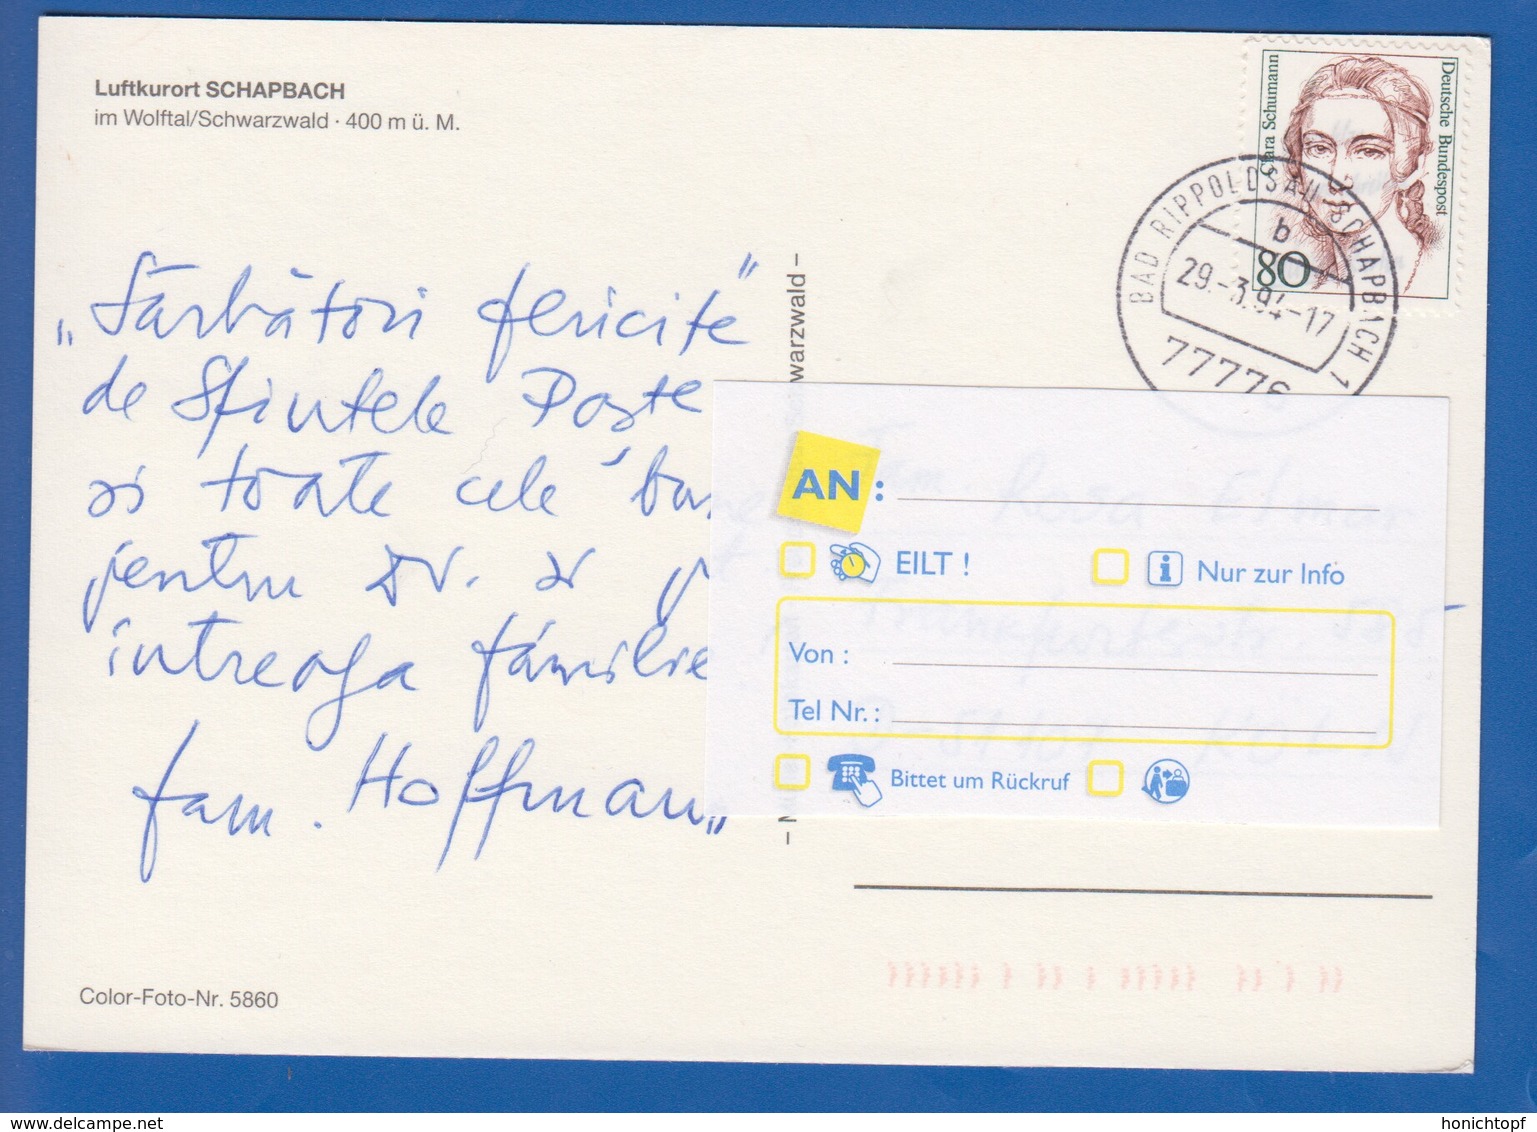 Luftkurort SCHAPBACH
im Wolftal/Schwarzwald · 400 m ü. M.
Clara Schumann
Deutsche Bundespost
80
BAD RIPPOLDSAU-SCHAPBACH 1
b
29.-3.94-17
77776
„Sărbători fericite"
de Sfintele Paște
și toate cele bu
pentru Dv. și
intreaga familie
fam. Hoffmann
warzwald –
AN :
EILT !
Nur zur Info
Von :
Tel Nr. :
Bittet um Rückruf
Color-Foto-Nr. 5860
www.delcampe.net
honichtopf